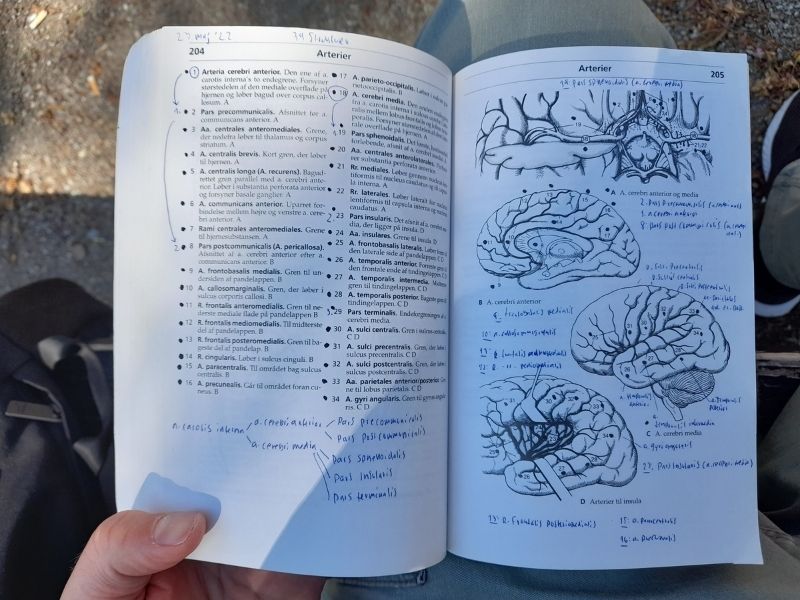 27 maj '22
34 strukturer
204
Arterier
1 Arteria cerebri anterior. Den ene af a.
carotis interna's to endegrene. Forsyner
størstedelen af den mediale overflade på
hjernen og løber bagud over corpus cal-
losum. A
1.
2 Pars precommunicalis. Afsnittet før a.
communicans anterior. A
3 Aa. centrales anteromediales. Grene,
der nedefra løber til thalamus og corpus
striatum. A
4 A. centralis brevis. Kort gren, der løber
til hjernen. A
5 A. centralis longa (A. recurens). Bagud-
rettet gren parallel med a. cerebri ante-
rior. Løber i substantia perforata anterior
og forsyner basale ganglier. A
6 A. communicans anterior. Uparret for-
bindelse mellem højre og venstre a. cere-
bri anterior. A
7 Rami centrales anteromediales. Grene
til hjernesubstansen. A
2.
8 Pars postcommunicalis (A. pericallosa).
Afsnittet af a. cerebri anterior efter a.
communicans anterior. B
9 A. frontobasalis medialis. Gren til un-
dersiden af pandelappen. B
10 A. callosomarginalis. Gren, der løber i
sulcus corporis callosi. B
11 R. frontalis anteromedialis. Gren til ne-
derste mediale flade på pandelappen B
12 R. frontalis mediomedialis. Til midterste
del af pandelappen. B
13 R. frontalis posteromedialis. Gren til ba-
geste del af pandelap. B
14 R. cingularis. Løber i sulcus cinguli. B
15 A. paracentralis. Til området bag sulcus
centralis. B
16 A. precunealis. Går til området foran cu-
neus. B
17 A. parieto-occipitalis. Løber i sulcus
parietooccipitalis. B
18 A. cerebri media. Den anden endegren
fra a. carotis interna
19 Pars sphenoidalis.
20 Aa. centrales anterolaterales.
ner substantia perforata anterior.
21 Rr. mediales. Løber gennem nucleus
la interna. A
22 Rr. laterales. Løber lateralt
lentiformis til capsula interna og nucleus
caudatus. A
2.
23 Pars insularis. Det afsnit af a. cerebri
der ligger på insula. D
24 Aa. insulares. Grene til insula. D
25 A. frontobasalis lateralis. Løber frem
den laterale side af pandelappen. CD
26 A. temporalis anterior. Forreste gren til
den frontale ende af tindingelappen. CD
27 A. temporalis intermedia. Midterste
gren til tindingelappen. C D
28 A. temporalis posterior. Bageste gren til
tindingelappen. C D
3.
29 Pars terminalis. Endeforgreningen af a.
cerebri media.
30 A. sulci centralis. Gren i sulcus centralis.
C D
31 A. sulci precentralis. Gren, der løber i
sulcus precentralis. C D
32 A. sulci postcentralis. Gren, der løber i
sulcus postcentralis. C D
33 Aa. parietales anterior/posterior. Gre-
ne til lobus parietalis. C D
34 A. gyri angularis. Gren til gyrus angula-
ris. C D
a. carotis interna
a. cerebri anterior
a. cerebri media
Pars precommunicalis
Pars postcommunicalis
Pars sphenoidalis
Pars insularis
Pars terminalis
Arterier
205
19. Pars sphenoidalis (a. cerebri media)
A A. cerebri anterior og media
2. Pars precommunicalis
8. Pars postcommunicalis
B A. cerebri anterior
9. frontobasalis medialis
10. a. callosomarginalis
C A. cerebri media
a. gyri angularis
23. Pars insularis (a. cerebri media)
D Arterier til insula
13. R. frontalis posteromedialis
15. a. paracentralis
16. a. precunealis